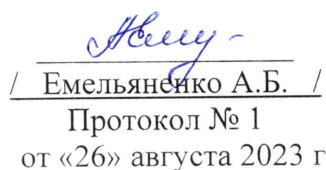 / Емельяненко А.Б. /
Протокол № 1
от «26» августа 2023 г